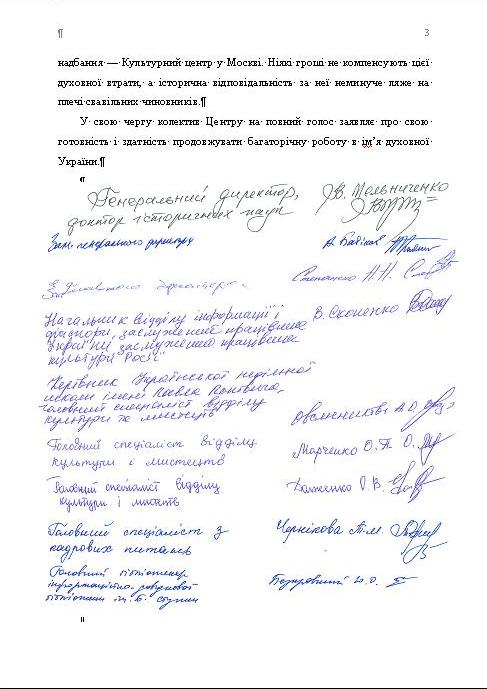 ¶ 3
надбання — Культурний центр у Москві. Ніякі гроші не компенсують цієї
духовної втрати, а історична відповідальність за неї неминуче ляже на
плечі свавільних чиновників.¶
У свою чергу колектив Центру на повний голос заявляє про свою
готовність і здатність продовжувати багаторічну роботу в ім’я духовної
України.¶
¶
Генеральний директор, В. Мельниченко
доктор історичних наук
Зам. генерального директора
Степаненко Н.Н.
Начальник відділу інформації і
діаспори, заслужений працівник В. Скопенко
України, заслужений працівник
культури Росії
Керівник Української недільної
школи імені Павла Поповича,
головний спеціаліст відділу
культури та мистецтв
Головний спеціаліст відділу Марченко О.П.
культури і мистецтв
Головний спеціаліст відділу
культури і мистецтв
Головний спеціаліст з Чернікова Т.М.
кадрових питань
Головний бібліотекар
інформаційно-довідкової